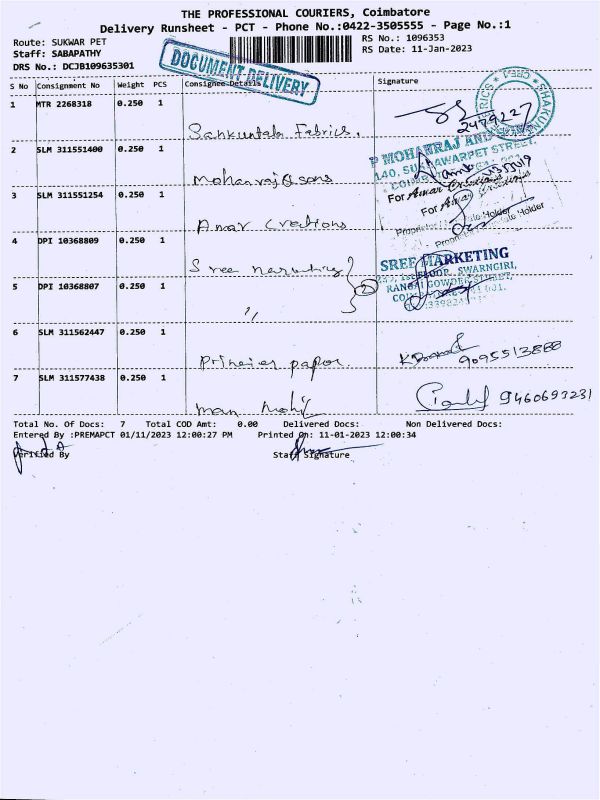 THE PROFESSIONAL COURIERS, Coimbatore
Delivery Runsheet - PCT - Phone No.:0422-3505555 - Page No.:1
Route: SUKWAR PET
RS No.: 1096353
Staff: SABAPATHY
RS Date: 11-Jan-2023
DRS No.: DCJB109635301
DOCUMENT DELIVERY
S No Consignment No Weight PCS Consignee Details Signature
1 MTR 2268318 0.250 1
Sankuntala Fabrics.
2479227
2 SLM 311551400 0.250 1
Mohanraj & sons
P MOHANRAJ AND
140, SUKRAWARPET STREET,
3 SLM 311551254 0.250 1
Amar Creations
For Amar Creations
For Amar Creations
4 DPI 10368809 0.250 1
Sree Marketing
SREE MARKETING
FLOOR, SWARNGIRI,
5 DPI 10368807 0.250 1
,, 2
RANGAI GOWDER STREET,
6 SLM 311562447 0.250 1
Primier paper.
9095513888
7 SLM 311577438 0.250 1
man Mohil
9460693231
Total No. Of Docs: 7 Total COD Amt: 0.00 Delivered Docs: Non Delivered Docs:
Entered By :PREMAPCT 01/11/2023 12:00:27 PM Printed On: 11-01-2023 12:00:34
Verified By Staff Signature